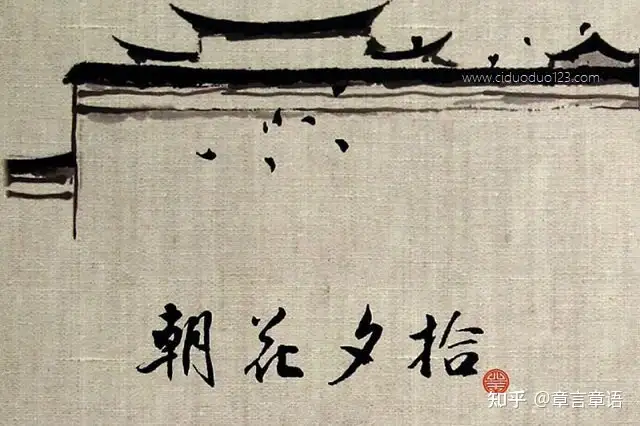 www.ciduoduo123.com
朝花夕拾
知乎 @章言章语